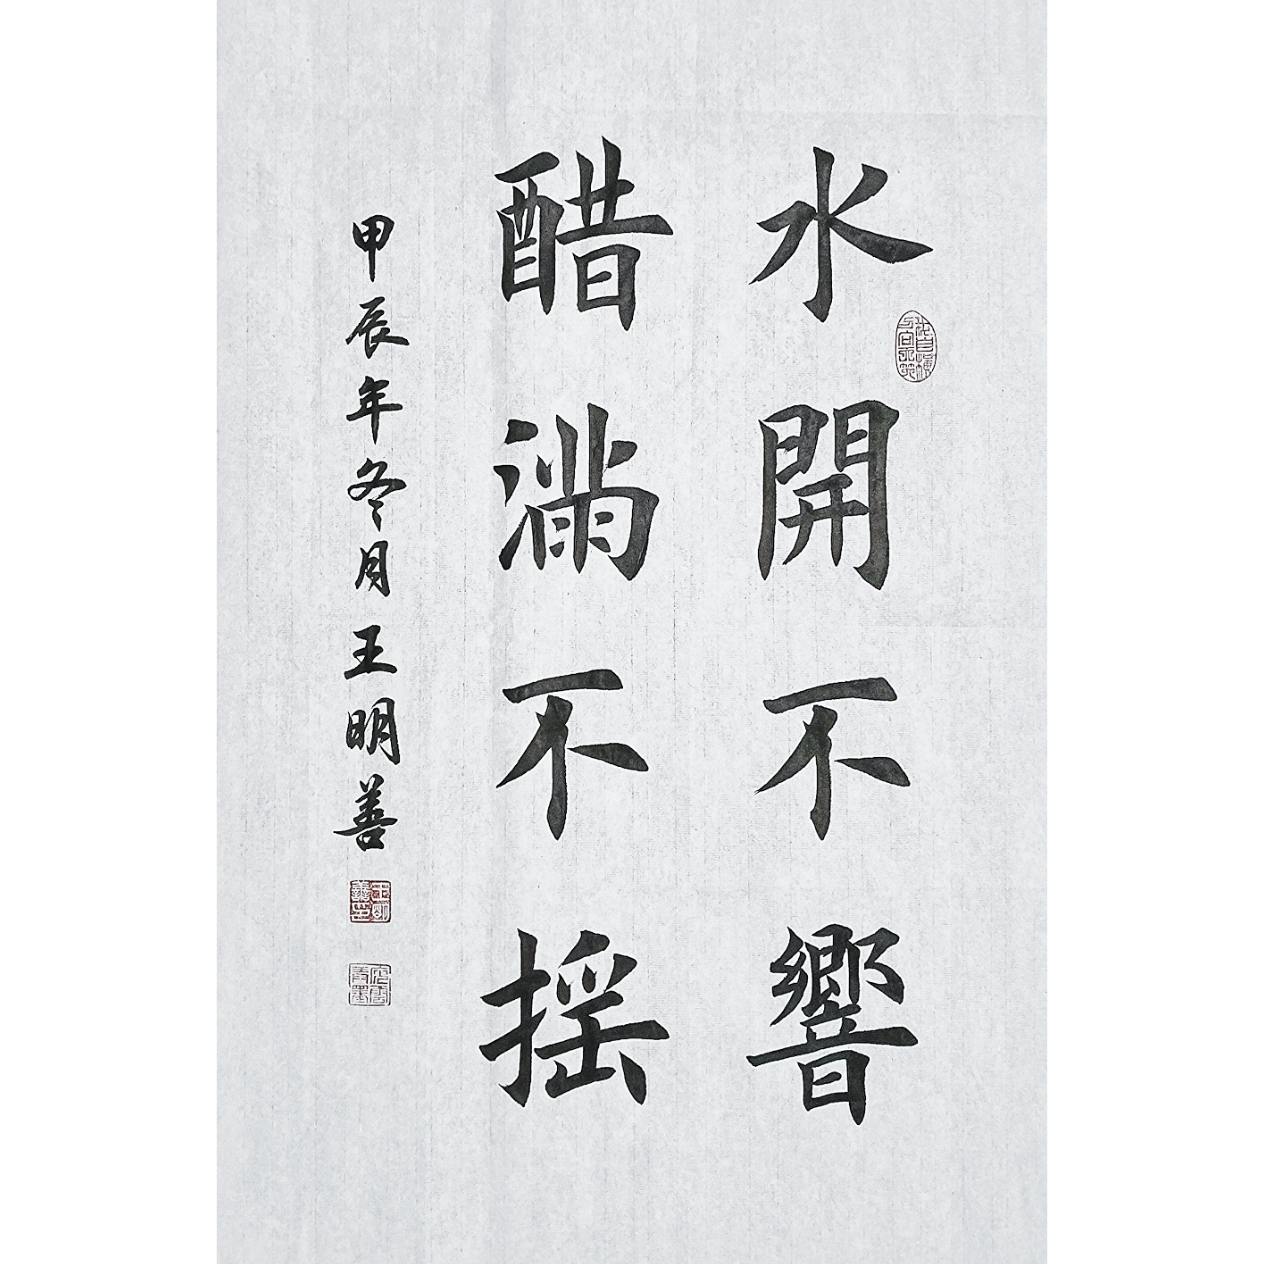 水開不響
醋滿不摇
甲辰年冬月王明善